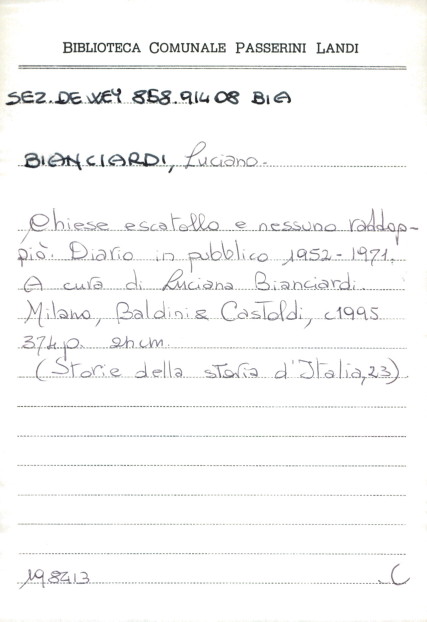 BIBLIOTECA COMUNALE PASSERINI LANDI
SEZ. DEWEY 858.914 08 BIA
BIANCIARDI, Luciano.
Chiese escatollo e nessuno raddop-
piò. Diario in pubblico 1952-1971.
A cura di Luciana Bianciardi.
Milano, Baldini & Castoldi, c1995
374 p. 21 cm.
(Storie della storia d'Italia, 23)
198413 C